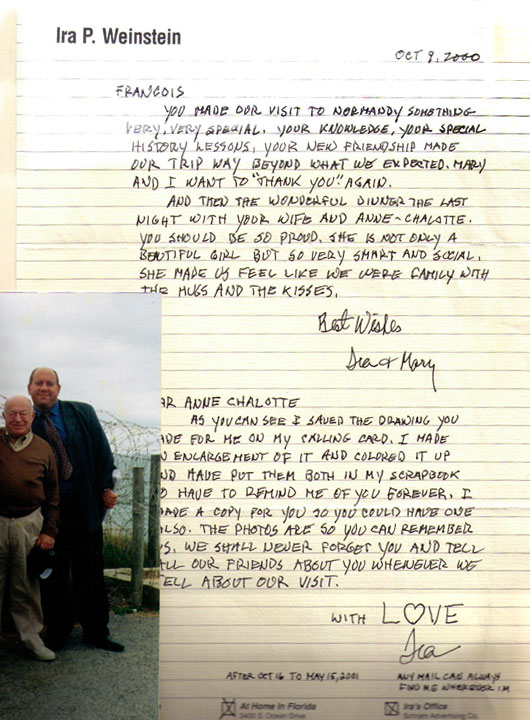 Ira P. Weinstein
OCT 9, 2000
FRANCOIS
YOU MADE OUR VISIT TO NORMANDY SOMETHING
VERY, VERY SPECIAL. YOUR KNOWLEDGE, YOUR SPECIAL
HISTORY LESSONS, YOUR NEW FRIENDSHIP MADE
OUR TRIP WAY BEYOND WHAT WE EXPECTED. MARY
AND I WANT TO "THANK YOU" AGAIN.
AND THEN THE WONDERFUL DINNER THE LAST
NIGHT WITH YOUR WIFE AND ANNE-CHALOTTE.
YOU SHOULD BE SO PROUD. SHE IS NOT ONLY A
BEAUTIFUL GIRL BUT SO VERY SMART AND SOCIAL.
SHE MADE US FEEL LIKE WE WERE FAMILY WITH
THE HUGS AND THE KISSES.
Best Wishes
Ira & Mary
AR ANNE CHALOTTE
AS YOU CAN SEE I SAVED THE DRAWING YOU
ADE FOR ME ON MY CALLING CARD. I MADE
N ENLARGEMENT OF IT AND COLORED IT UP
ND HAVE PUT THEM BOTH IN MY SCRAPBOOK
O HAVE TO REMIND ME OF YOU FOREVER. I
ADE A COPY FOR YOU SO YOU COULD HAVE ONE
LSO. THE PHOTOS ARE SO YOU CAN REMEMBER
S. WE SHALL NEVER FORGET YOU AND TELL
LL OUR FRIENDS ABOUT YOU WHENEVER WE
ELL ABOUT OUR VISIT.
WITH LOVE
Ira
AFTER OCT 16 TO MAY 15, 2001
ANY MAIL CAN ALWAYS
FIND ME WHEREVER IM
At Home In Florida
3400 S. Ocean Drive
Ira's Office
Schram Advertising Co.